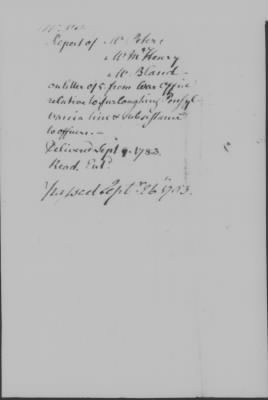 Report of Mr. Peters
Mr McHenry
Mr. Bland
on letter of 5. from War Office
relative to furloughing Pensyl
vania line & subsistance
to officers.
Delivered Sept 9. 1783.
Read. Entd.
Passed Septr. 26th 1783.